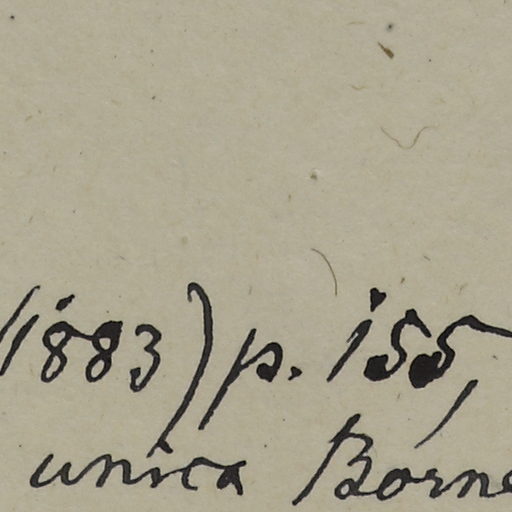 (1883) p. 155,
unica Borne